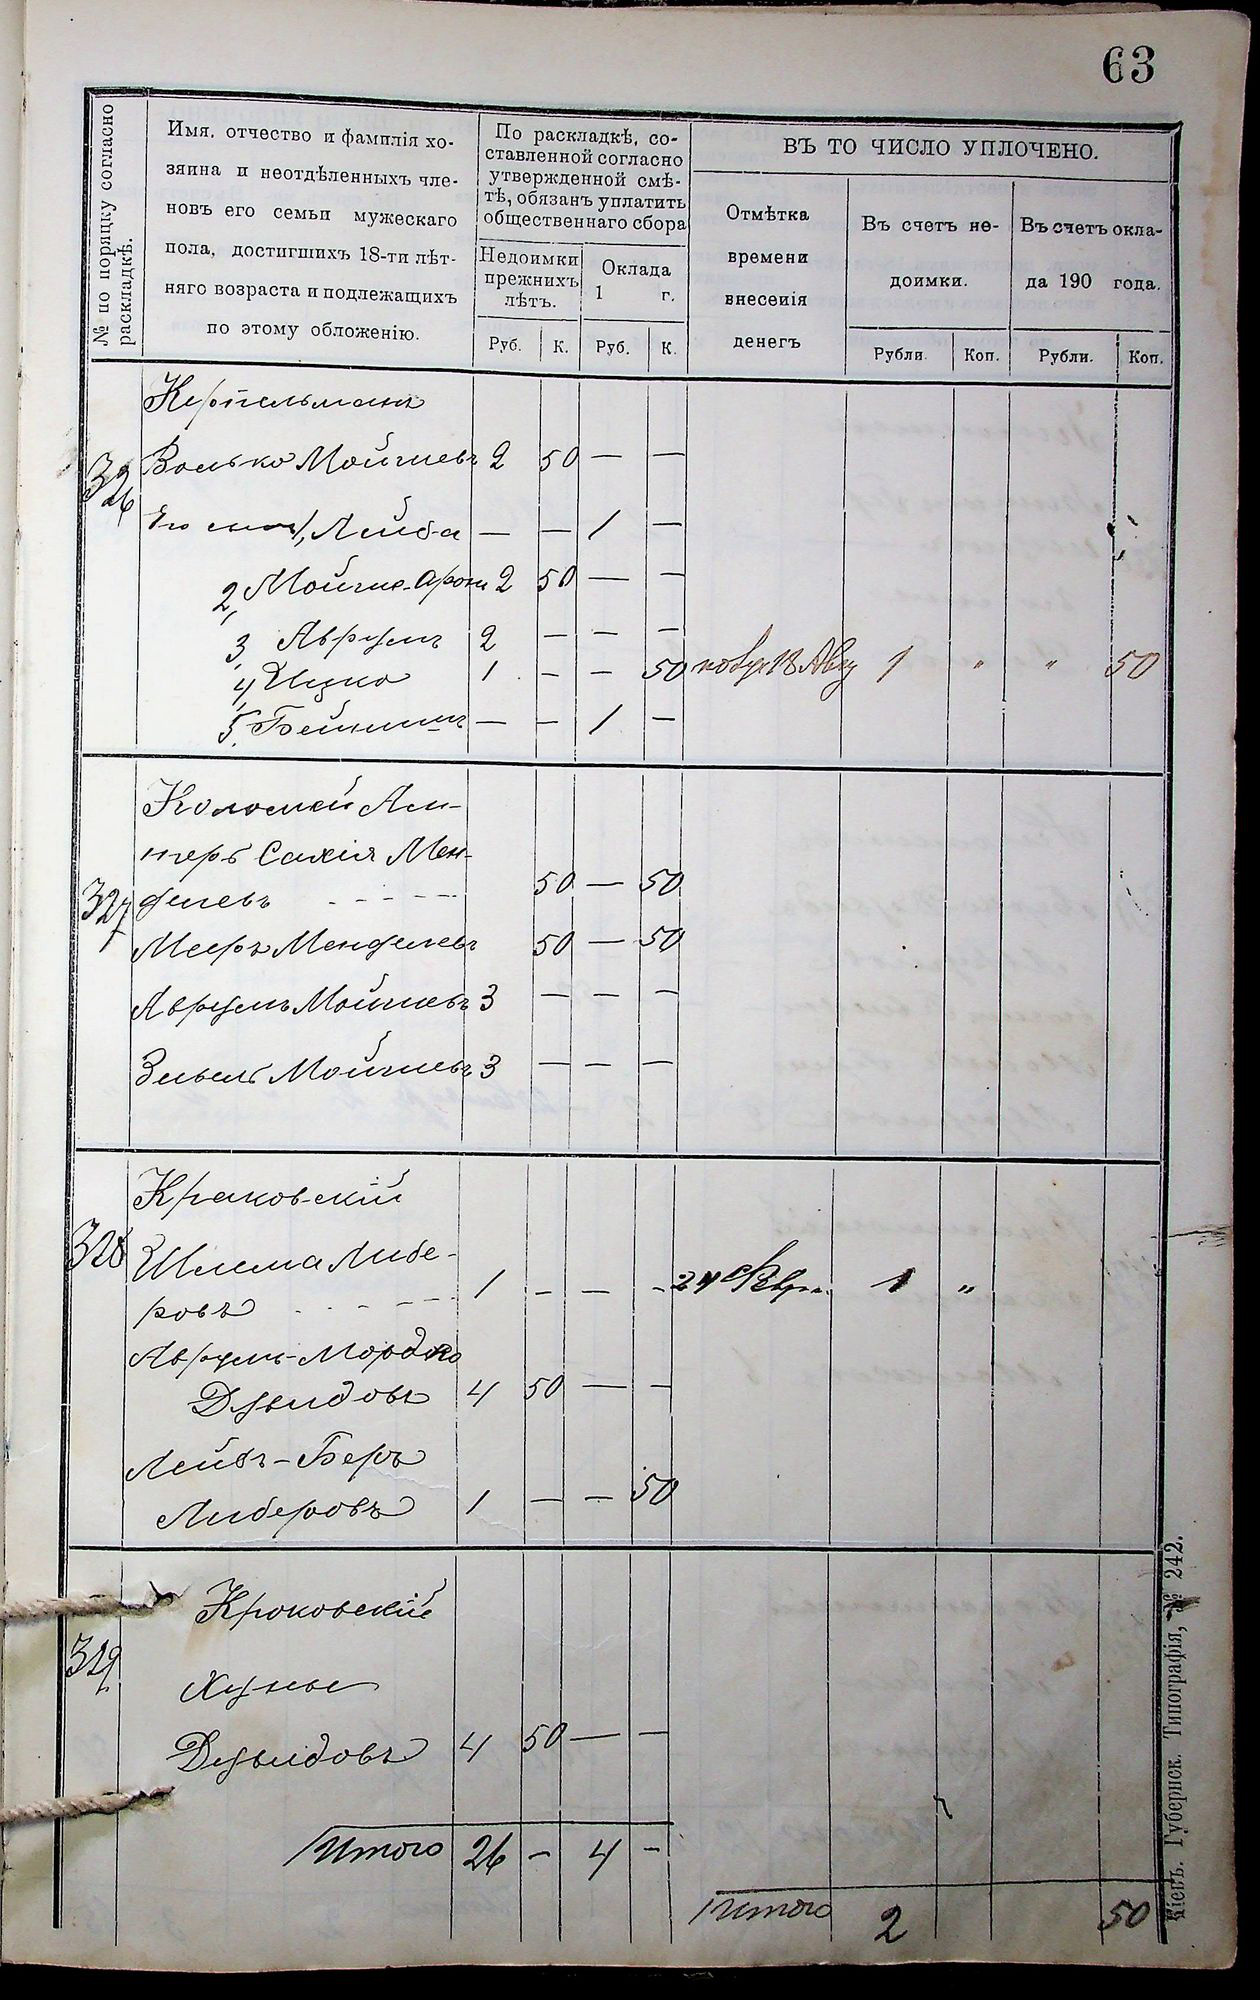 63
№ по поряцку согласно раскладкѣ.
Имя, отчество и фамилія хо-
зяина и неотдѣленныхъ чле-
новъ его семьи мужескаго
пола, достигшихъ 18-ти лѣт-
няго возраста и подлежащихъ
по этому обложенію.
По раскладкѣ, со-
ставленной согласно
утвержденной смѣ-
тѣ, обязанъ уплатить
общественнаго сбора
Недоимки
прежнихъ
лѣтъ.
Оклада
1 г.
Руб. К. Руб. К.
ВЪ ТО ЧИСЛО УПЛОЧЕНО.
Отмѣтка
времени
внесенія
денегъ
Въ счетъ не-
доимки.
Въ счетъ окла-
да 190 года.
Рубли. Коп. Рубли. Коп.
Керпельманъ
326 Волько Мойшевъ 2 50 — —
Его сын 1, Лейба — — 1 —
2, Мойше-Арон 2 50 — —
3, Аврумъ 2 — — —
4, Ицко 1 — — 50 18 Авг 1 " " 50
5, Бейнишъ — — 1 —
Коломей Ал-
теръ Сахія Мен-
327 делевъ - - - - - 50 — 50
Мееръ Менделевъ 50 — 50
Аврумъ Мойшевъ 3 — — —
Зисель Мойшевъ 3 — — —
Краковскій
328 Шлема Либе-
ровъ - - - - - 1 — — — 24 Февр. 1 "
Аврумъ-Мордко
Дувидовъ 4 50 — —
Лейбъ-Беръ
Либеровъ 1 — — 50
Кроковскій
329
Хунье
Дувидовъ 4 50 — —
Итого 26 — 4 —
Итого 2 50
Кіевъ. Губернск. Типографія, № 242.